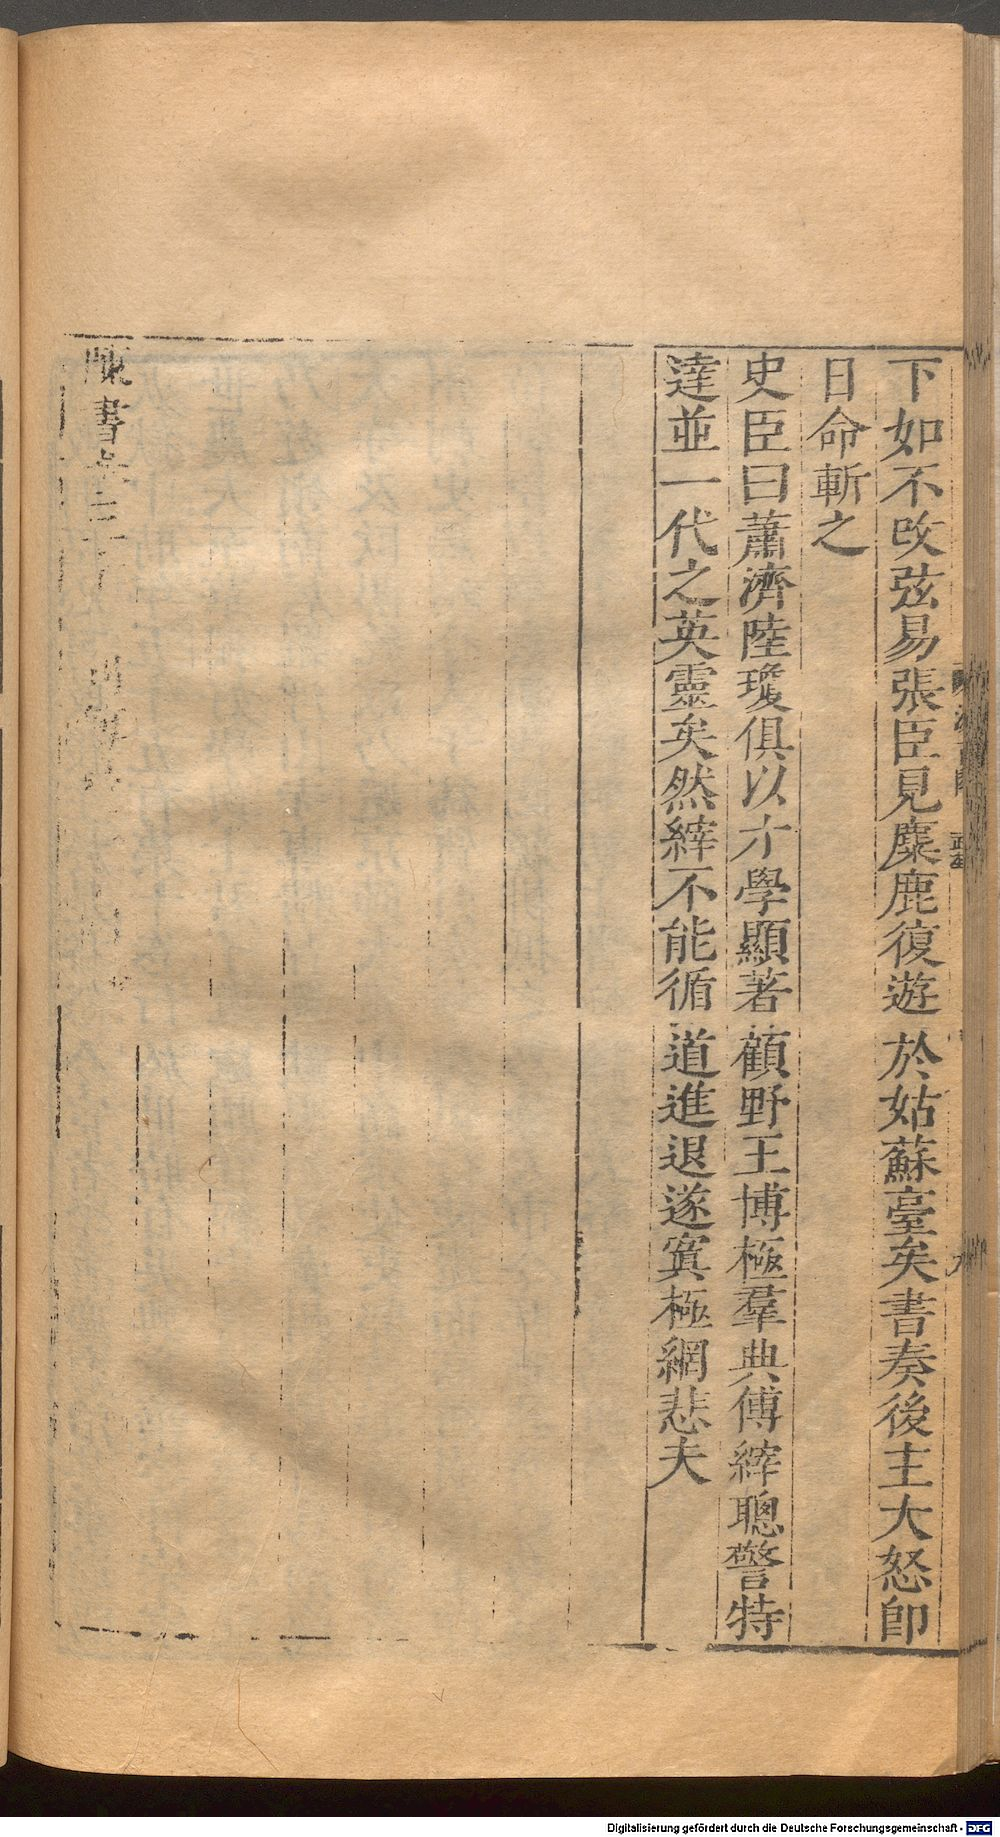 下如不改弦易張臣見麋鹿復遊於姑蘇臺矣書奏後主大怒即
日命斬之
史臣曰蕭濟陸瓊俱以才學顯著顧野王博極羣典傅縡聰警特
達並一代之英靈矣然縡不能循道進退遂寘極網悲夫
陳書卷三十
Digitalisierung gefördert durch die Deutsche Forschungsgemeinschaft - DFG